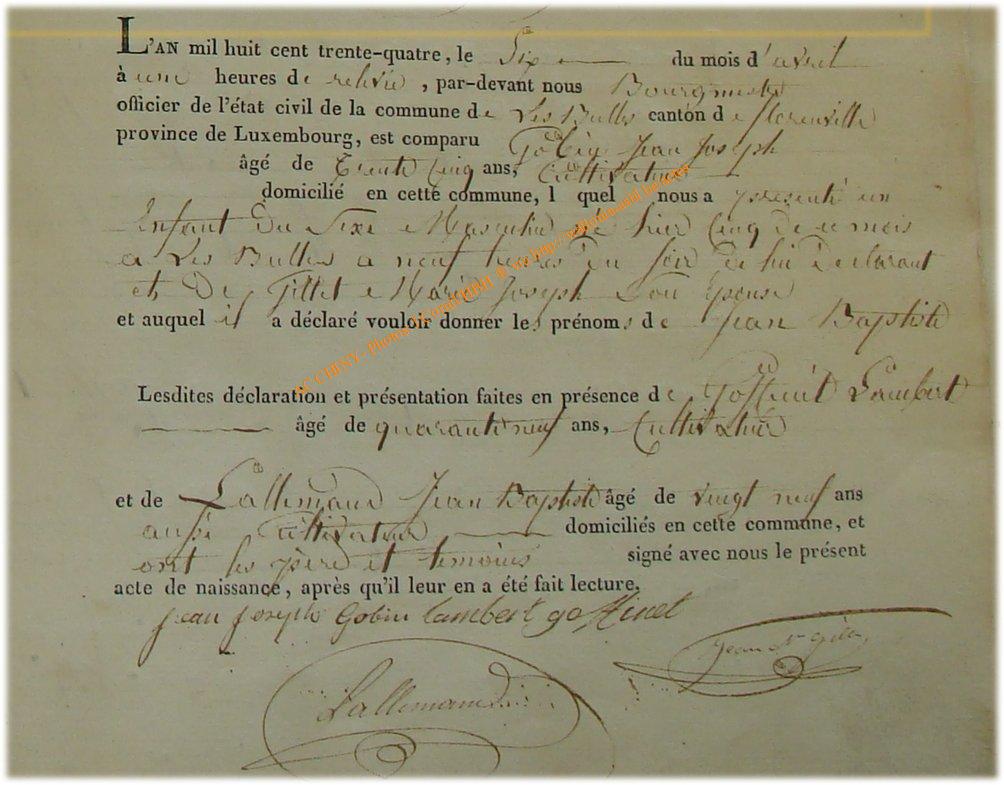 L'AN mil huit cent trente-quatre, le Six du mois d'avril
à une heures de relevée, par-devant nous Bourgmestre
officier de l'état civil de la commune de Les Bulles canton de florenville
province de Luxembourg, est comparu Gobin Jean Joseph
âgé de trente cinq ans, Cultivateur
domicilié en cette commune, l quel nous a présenté un
Enfant du Sexe Masculin né hier Cinq de ce mois
a Les Bulles a neuf heures du soir de lui Déclarant
et de Gillet Marie Joseph Son épouse
et auquel il a déclaré vouloir donner les prénoms de Jean Baptiste
Lesdites déclaration et présentation faites en présence de Goffinet Lambert
âgé de quarante neuf ans, Cultivateur
et de Lallemand Jean Baptiste âgé de vingt neuf ans
aussi Cultivateur domiciliés en cette commune, et
ont les père et temoins signé avec nous le présent
acte de naissance, après qu'il leur en a été fait lecture.
jean joseph gobin lambert goffinet
jean
Lallemand